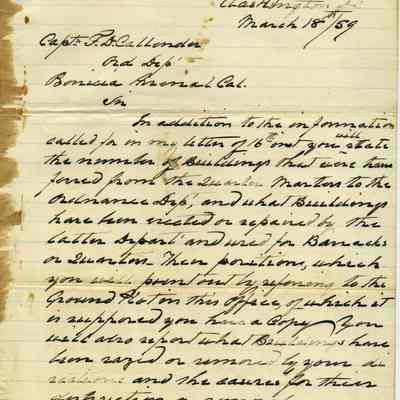 Washington
March 18th/59
Capt. F. D. Callender
Ord Dept
Benicia Arsenal Cal.
Sir
In addition to the information
called for in my letter of 16th inst you will state
the number of Buildings that were trans
ferred from the Quarter Masters to the
Ordnance Dep, and what Buildings
have been erected or repaired by the
latter Depart and used for Barracks
or Quarters. Their positions, which
you will point out by refering to the
Ground Plot on this Office, of which it
is supposed you have a Copy. You
will also report what Buildings have
been razed or removed by your di
rections and the causes for their